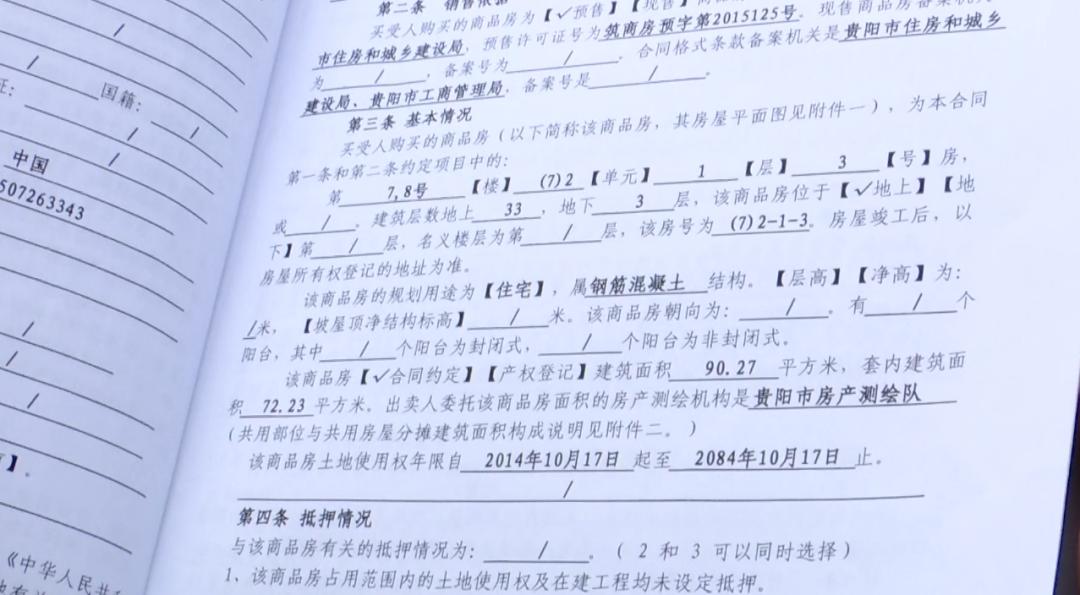 国籍:
证:
中国
507263343
《中华人民共
第二条 销售依据
买受人购买的商品房为【✓预售】【现售】
市住房和城乡建设局，预售许可证号为筑商房预字第2015125号。现售商品房备案机
为 / ，备案号为 / 。合同格式条款备案机关是贵阳市住房和城乡
建设局、贵阳市工商管理局，备案号是 / 。
第三条 基本情况
买受人购买的商品房（以下简称该商品房，其房屋平面图见附件一），为本合同
第一条和第二条约定项目中的:
第 7,8号 【楼】 (7)2 【单元】 1 【层】 3 【号】房，
或 / 。建筑层数地上 33 ，地下 3 层，该商品房位于【✓地上】【地
下】第 / 层，名义楼层为第 / 层，该房号为 (7)2-1-3。房屋竣工后，以
房屋所有权登记的地址为准。
该商品房的规划用途为【住宅】，属钢筋混凝土 结构。【层高】【净高】为:
/米，【坡屋顶净结构标高】 / 米。该商品房朝向为: / 。有 / 个
阳台，其中 / 个阳台为封闭式， / 个阳台为非封闭式。
该商品房【✓合同约定】【产权登记】建筑面积 90.27 平方米，套内建筑面
积 72.23 平方米。出卖人委托该商品房面积的房产测绘机构是贵阳市房产测绘队
（共用部位与共用房屋分摊建筑面积构成说明见附件二。）
该商品房土地使用权年限自 2014年10月17日 起至 2084年10月17日 止。
/
第四条 抵押情况
与该商品房有关的抵押情况为: / 。（ 2 和 3 可以同时选择）
1、该商品房占用范围内的土地使用权及在建工程均未设定抵押。